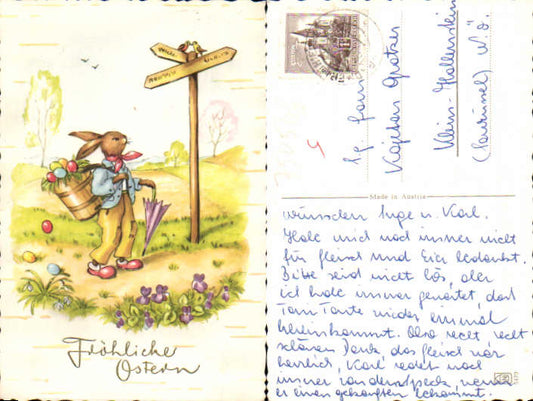 Fröhliche
Ostern
Lg. Fam.
Klein-Hollenstein
N.Ö.
Made in Austria
wünschen Inge u. Karl.
Habe mich noch immer nicht
für Fleisch und Eier bedankt.
Bitte seid nicht bös, aber
ich habe immer gewartet, daß
Tante wieder einmal
hereinkommt. Also recht, recht
schönen Dank, das Fleisch war
herrlich, Karl redet noch
immer von dem Speck, wenn
er einen gekauften bekommt.